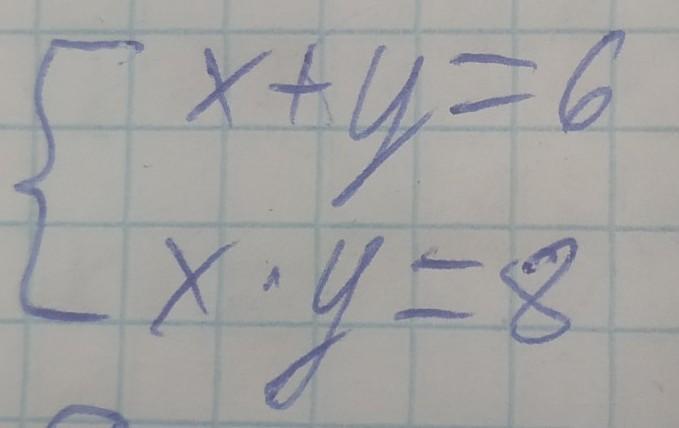 x+y=6
x·y=8